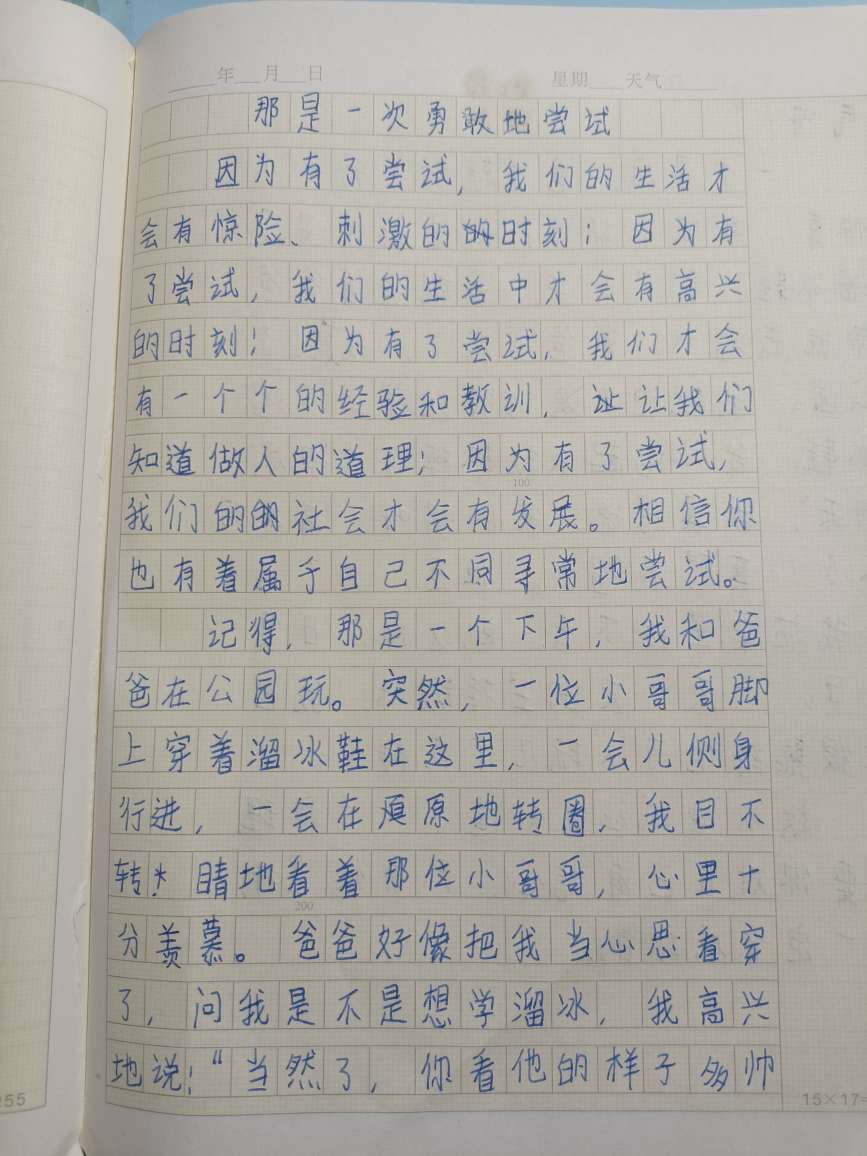 年 月 日 星期 天气
那是一次勇敢地尝试
因为有了尝试，我们的生活才
会有惊险、刺激的时刻；因为有
了尝试，我们的生活中才会有高兴
的时刻；因为有了尝试，我们才会
有一个个的经验和教训，让我们
知道做人的道理；因为有了尝试，
100
我们的社会才会有发展。相信你
也有着属于自己不同寻常地尝试。
记得，那是一个下午，我和爸
爸在公园玩。突然，一位小哥哥脚
上穿着溜冰鞋在这里，一会儿侧身
行进，一会在原地转圈，我目不
转睛地看着那位小哥哥，心里十
200
分羡慕。爸爸好像把我当心思看穿
了，问我是不是想学溜冰，我高兴
地说：“当然了，你看他的样子多帅
255
15×17=